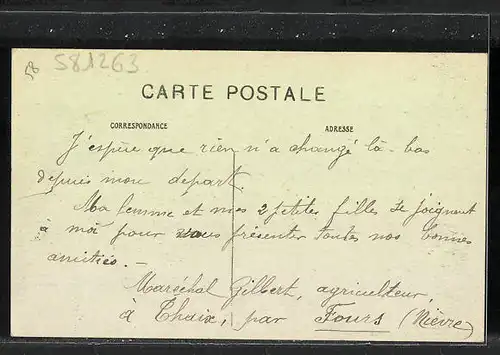 58
581263
CARTE POSTALE
CORRESPONDANCE
ADRESSE
J'espère que rien n'a changé là-bas
depuis mon depart.
Ma femme et mes 2 petites filles se joignent
à moi pour vous présenter toutes nos bonnes
amitiés. -
Maréchal Gilbert, agriculteur,
à Thaix, par Fours (Nièvre)